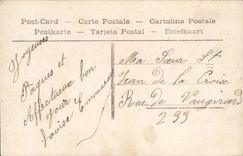 Post-Card — Carte Postale — Cartolina Postale
Postkarte — Tarjeta Postal — Briefkaart
Joyeuses
Pâques et
affectueux bon
jour
Louise
Ma Sœur St
Jean de la Croix
Rue de Vaugirard
233